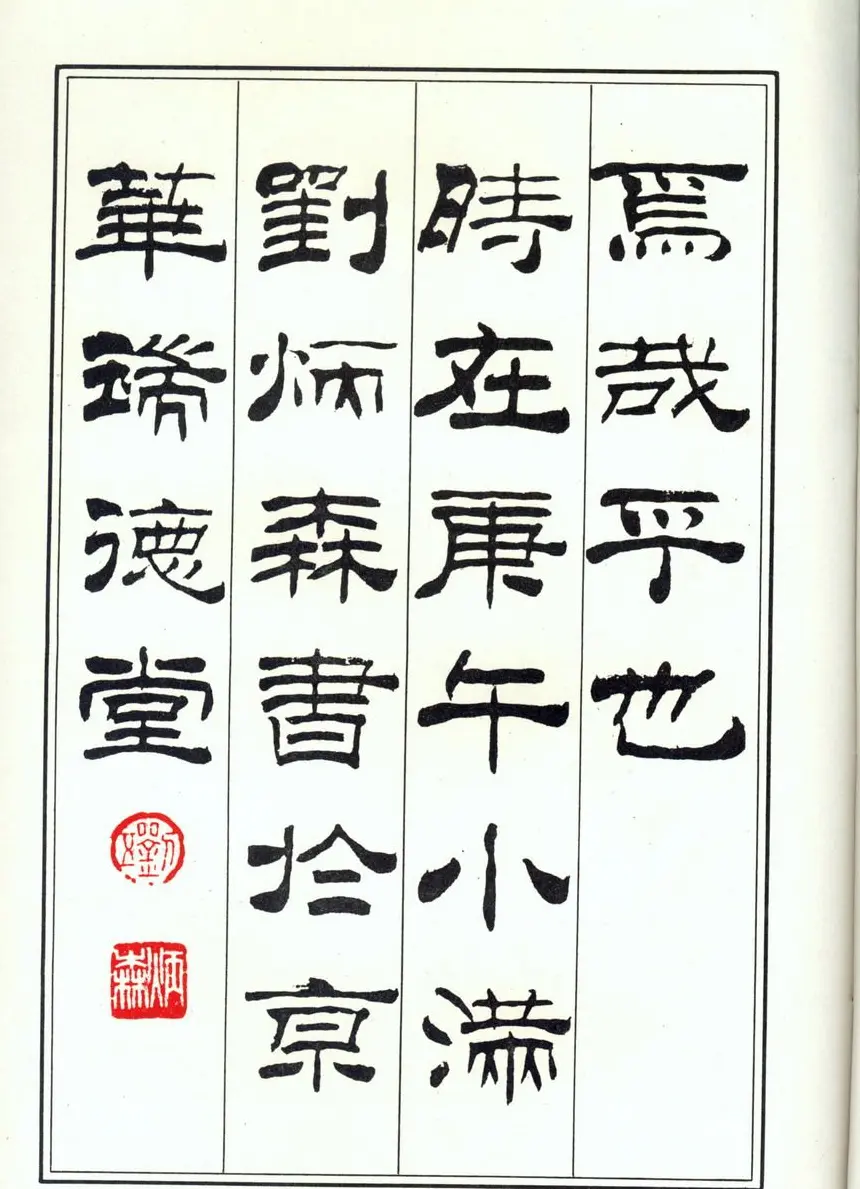 焉哉乎也
時在庚午小滿
劉炳森書於京
華瑞德堂
劉
炳森